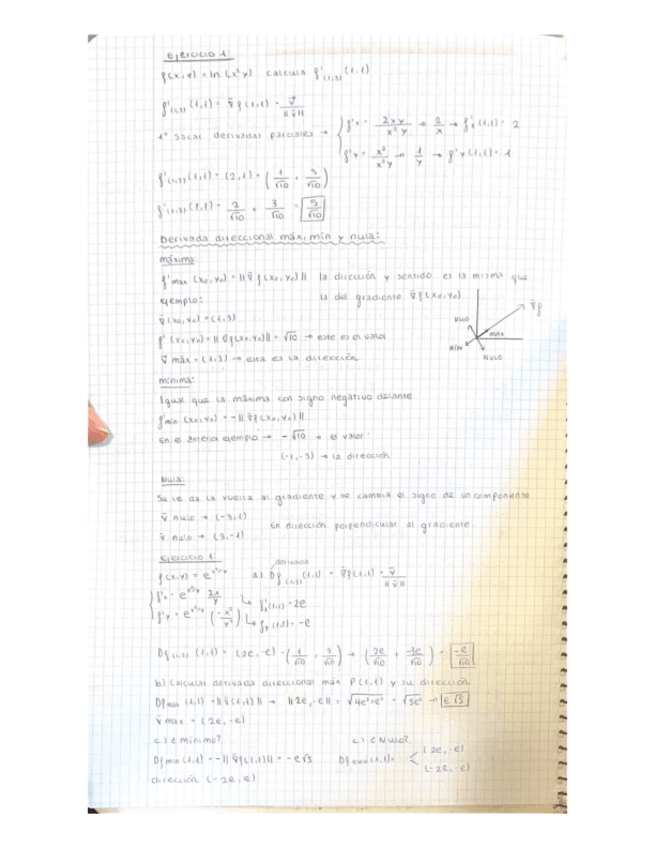 Ejercicio 1:
f(x,y) = ln (x²y) calcula f'(1,3) (1,1)
f'(1,3) (1,1) = ∇f(1,1) · v/||v||
1º Sacar derivadas parciales → { f'x = 2xy/x²y → 2/x → f'x(1,1) = 2
f'y = x²/x²y → 1/y → f'y(1,1) = 1
f'(1,3) (1,1) = (2,1) · (1/√10 , 3/√10)
f'(1,3) (1,1) = 2/√10 + 3/√10 = 5/√10
Derivada direccional máx, mín y nula:
máxima:
f'max (x0,y0) = ||∇f(x0,y0)|| la dirección y sentido es la misma que
ejemplo: la del gradiente ∇f(x0,y0)
∇(x0,y0) = (1,3)
f'(x0,y0) = ||∇f(x0,y0)|| = √10 → este es el valor
v máx = (1,3) → esta es la dirección
∇f
NULO
MÁX
MÍN
NULO
mínima:
Igual que la máxima con signo negativo delante
f'min (x0,y0) = -||∇f(x0,y0)||
En el anterior ejemplo → -√10 → el valor
(-1,-3) → la dirección
Nula:
Se le da la vuelta al gradiente y se cambia el signo de un componente
v nulo → (-3,1)
v nulo → (3,-1)
En dirección perpendicular al gradiente
Ejercicio 1:
derivada
f(x,y) = e^x²/y a) Df(1,3) (1,1) = ∇f(1,1) · v/||v||
{ f'x = e^x²/y 2x/y → f'x(1,1) = 2e
f'y = e^x²/y (-x²/y²) → f'y(1,1) = -e
Df(1,3) (1,1) = (2e,-e) · (1/√10 , 3/√10) → (2e/√10 + -3e/√10) = -e/√10
b) Calcular derivada direccional máx P(1,1) y su dirección
Df max (1,1) = ||∇f(1,1)|| → ||2e,-e|| = √4e²+e² = √5e² → e√5
v max = (2e,-e)
c) ¿mínimo? c) ¿Nulo?
Df min (1,1) = -||∇f(1,1)|| = -e√5 Df nulo (1,1) = < (2e,-e)
(-2e,-e)
dirección (-2e,e)